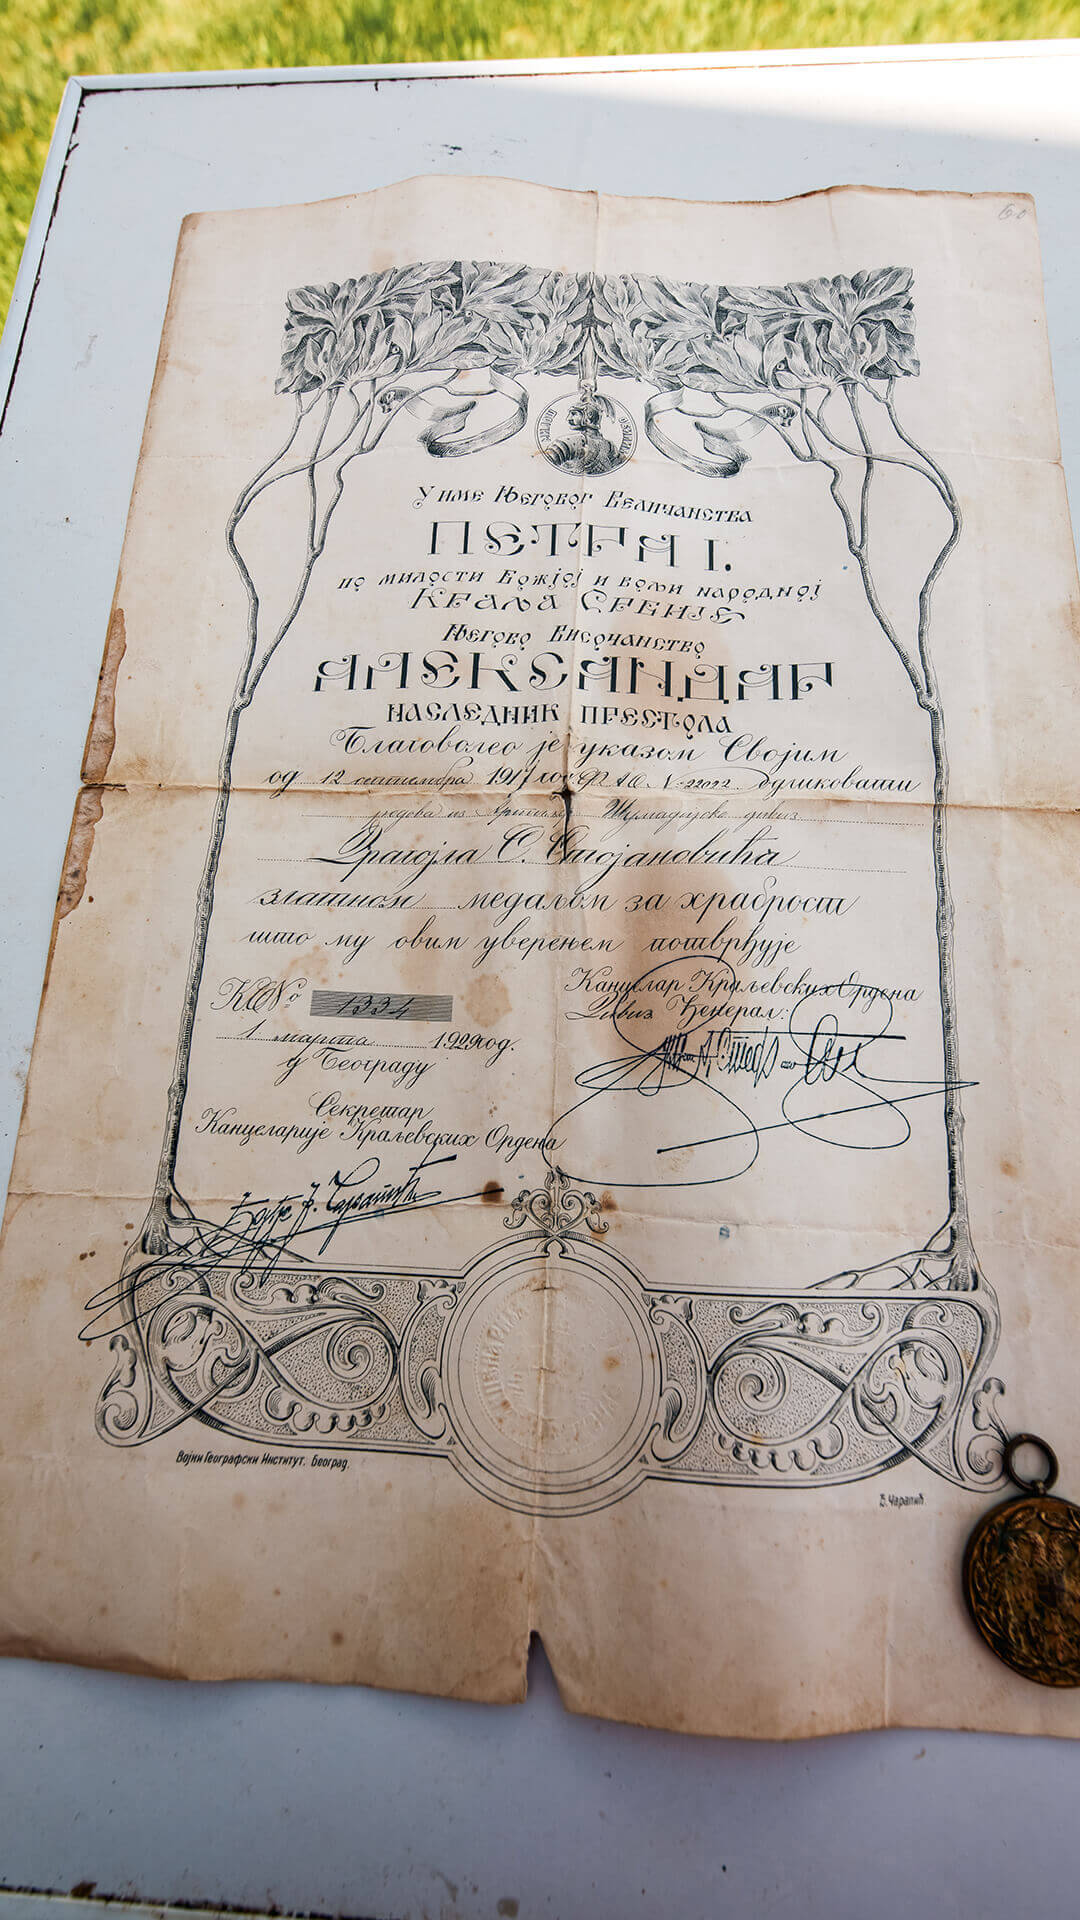 60
У име Његовог Величанства
ПЕТРА I.
по милости Божјој и вољи народној
Краља Србије
Његово Височанство
АЛЕКСАНДАР
наследник престола
Благоволео је указом Својим
од 12 септембра 1917 год ФАО. № 22022 одликовати
редова из Шумадијске дивиз
Драгојла С. Стојановића
златном медаљом за храброст
што му овим уверењем потврђује
Канцелар Краљевских Ордена
Дивиз. Ђенерал:
К.С.№ 1334
1 марта 1929 год.
у Београду
Секретар
Канцеларије Краљевских Ордена
Војни Географски Институт. Београд.
Ђ. Чарапић